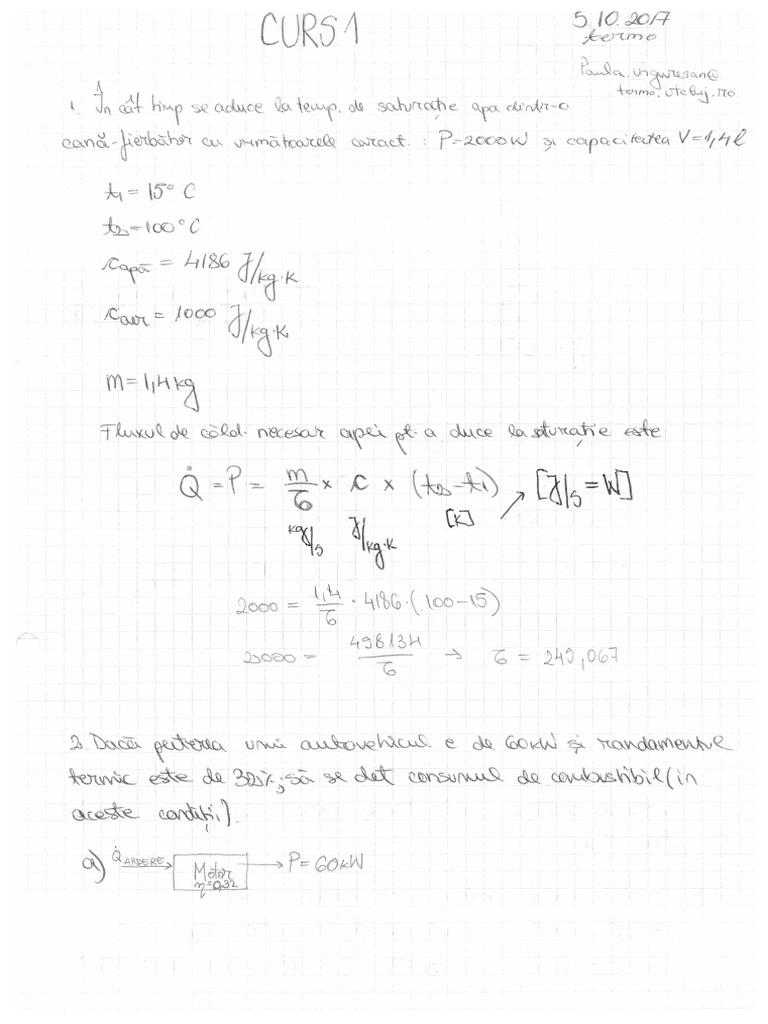 CURS 1
5.10.2017
termo
Paula.Unguresan@
termo.utcluj.ro
1. În cât timp se aduce la temp. de saturație apa dintr-o
cană-fierbător cu următoarele caract. : P=2000W și capacitatea V=1,4l
t1 = 15° C
t2=100°C
capă = 4186 J/kg·K
caer = 1000 J/kg·K
m=1,4kg
Fluxul de căld. necesar apei pt. a duce la saturație este
Q̇ = P = m/τ × c × (t2-t1) → [J/s = W]
kg/s J/kg·K [K]
2000 = 1,4/τ · 4186·(100-15)
2000 = 498134/τ → τ = 249,067
2. Dacă puterea unui autovehicul e de 60kW și randamentul
termic este de 32%, să se det consumul de combustibil (in
aceste condiții).
a) Q̇ ARDERE → Motor → P= 60kW
η=0,32